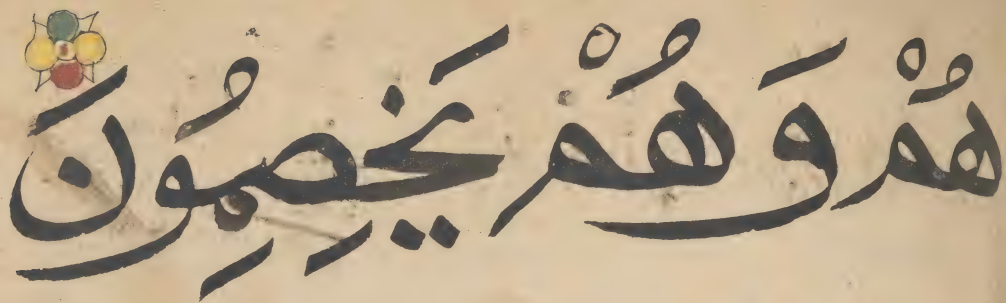 هُمْ وَهُمْ يَخِصِمُونَ